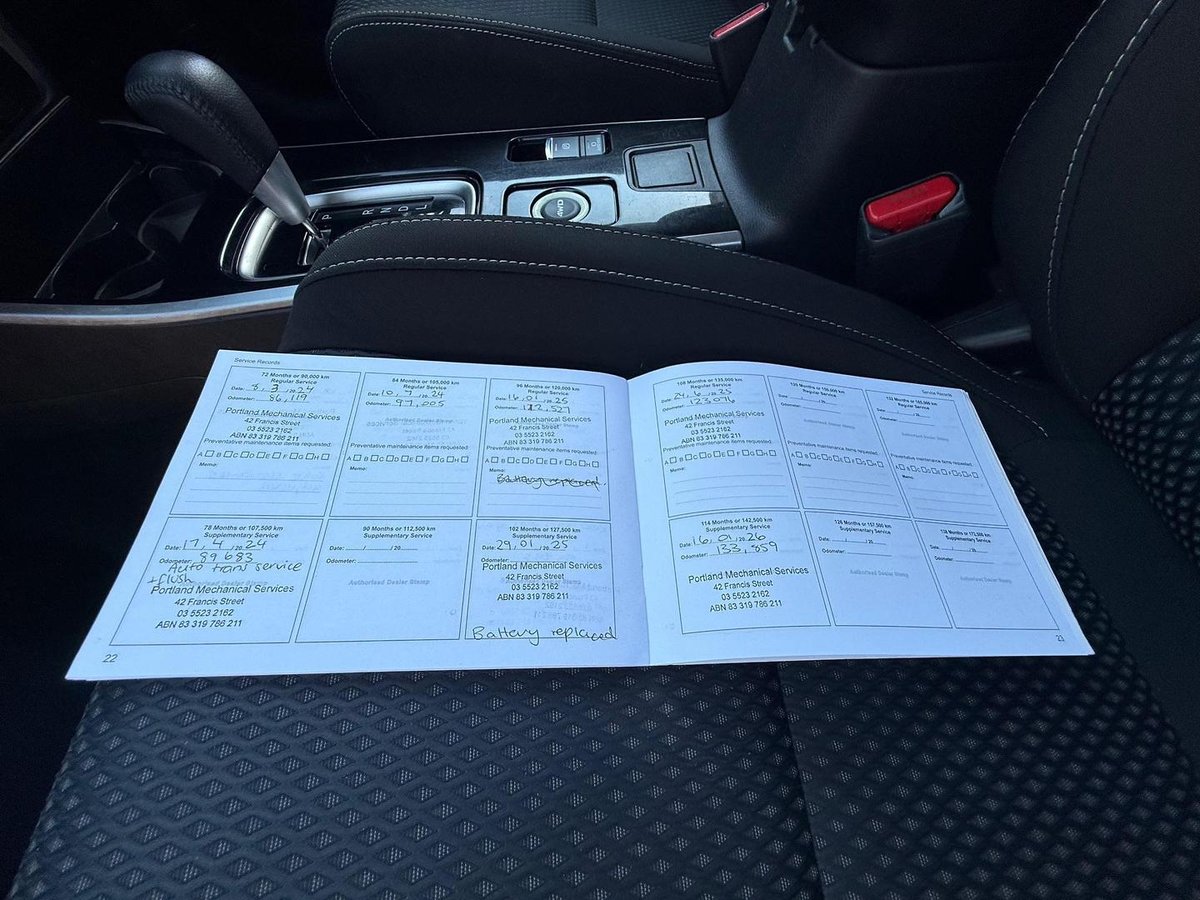 Service Records
72 Months or 90,000 km
Regular Service
Date: 8, 3, 20 24
Odometer: 86,119
Portland Mechanical Services
42 Francis Street
03 5523 2162
ABN 83 319 786 211
Preventative maintenance items requested:
A B C D E F G H
Memo:
84 Months or 105,000 km
Regular Service
Date: 10, 9, 20 24
Odometer: 97,005
Authorised Dealer Stamp
Preventative maintenance items requested:
A B C D E F G H
Memo:
96 Months or 120,000 km
Regular Service
Date: 16, 01, 20 25
Odometer: 112,527
Portland Mechanical Services
42 Francis Street
03 5523 2162
ABN 83 319 786 211
Preventative maintenance items requested:
A B C D E F G H
Memo:
Battery replaced.
78 Months or 107,500 km
Supplementary Service
Date: 17, 4, 20 24
Odometer: 89683
Auto trans service
+ flush
Authorised Dealer Stamp
Portland Mechanical Services
42 Francis Street
03 5523 2162
ABN 83 319 786 211
90 Months or 112,500 km
Supplementary Service
Date: / / 20
Odometer:
Authorised Dealer Stamp
102 Months or 127,500 km
Supplementary Service
Date: 29, 01, 20 25
Odometer:
Portland Mechanical Services
42 Francis Street
03 5523 2162
ABN 83 319 786 211
Battery replaced
22
Service Records
108 Months or 135,000 km
Regular Service
Date: 24, 6, 20 25
Odometer: 123076
Portland Mechanical Services
42 Francis Street
03 5523 2162
ABN 83 319 786 211
Preventative maintenance items requested:
A B C D E F G H
Memo:
120 Months or 150,000 km
Regular Service
Date: / / 20
Odometer:
Authorised Dealer Stamp
Preventative maintenance items requested:
A B C D E F G H
Memo:
132 Months or 165,000 km
Regular Service
Date: / / 20
Odometer:
Authorised Dealer Stamp
Preventative maintenance items requested:
A B C D E F G H
Memo:
114 Months or 142,500 km
Supplementary Service
Date: 16, 01, 20 26
Odometer: 133,859
Portland Mechanical Services
42 Francis Street
03 5523 2162
ABN 83 319 786 211
126 Months or 157,500 km
Supplementary Service
Date: / / 20
Odometer:
Authorised Dealer Stamp
138 Months or 172,500 km
Supplementary Service
Date: / / 20
Odometer:
Authorised Dealer Stamp
23
P
R
N
D
L